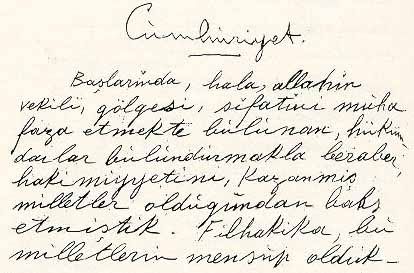 Cümhüriyet.
Başlarında, hala, allahın
vekili, gölgesi, sıfatını muha
faza etmekte bulunan, hüküm
darlar bulundurmakla beraber,
hakimiyyetini, kazanmış
milletler olduğundan bahs
etmiştik. Filhakika, bu
milletlerin mensup olduk-